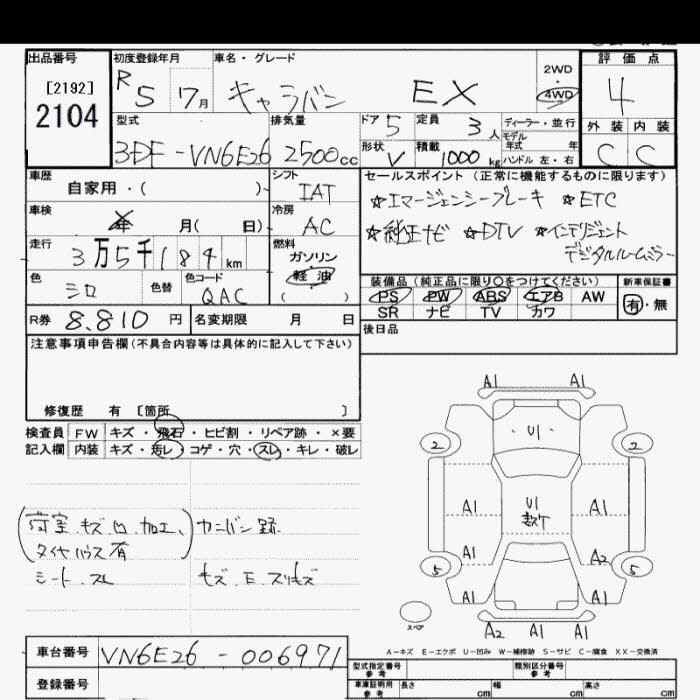 出品番号
[2192]
2104
初度登録年月
R5 年 7月
車名・グレード
キャラバン EX
2WD
・
4WD
評価点
4
外装 内装
C C
型式
3DF-VN6E26
排気量
2500cc
ドア 5
定員 3人
形状 V
積載 1000kg
ディーラー・並行
モデル
年式 年
ハンドル 左・右
車歴
自家用・( )
シフト
IAT
車検
年 月( 日)
冷房
AC
走行
3万5千189km
燃料
ガソリン
・
軽油
( )
色
シロ
色替
色コード
QAC
R券 8.810 円
名変期限 月 日
セールスポイント (正常に機能するものに限ります)
☆エマージェンシーブレーキ ☆ETC
☆純正ナビ ☆DTV ☆インテリジェント
デジタルルームミラー
装備品 (純正品に限り○をつけてください)
PS PW ABS エアB AW
SR ナビ TV カワ
新車保証書
有・無
後日品
注意事項申告欄(不具合内容等は具体的に記入して下さい)
修復歴 有 [箇所 ]
検査員
記入欄
FW キズ・飛石・ヒビ割・リペア跡・×要
内装 キズ・汚レ・コゲ・穴・スレ・キレ・破レ
荷室 キズ 凹 加工、
タイヤハウス有
シート スレ
キズ E スリキズ
A1 A1
U1
2 2
A1 U1 A1
A1 A2
5 5
A1 A1
A2 A1 A1
スペア
A-キズ E-エクボ U-凹み W-補修跡 S-サビ C-腐食 XX-交換済
車台番号 VN6E26-006971
登録番号
型式指定番号
参考
類別区分番号
参考
車庫証明用
参考
長さ cm 幅 cm 高さ cm